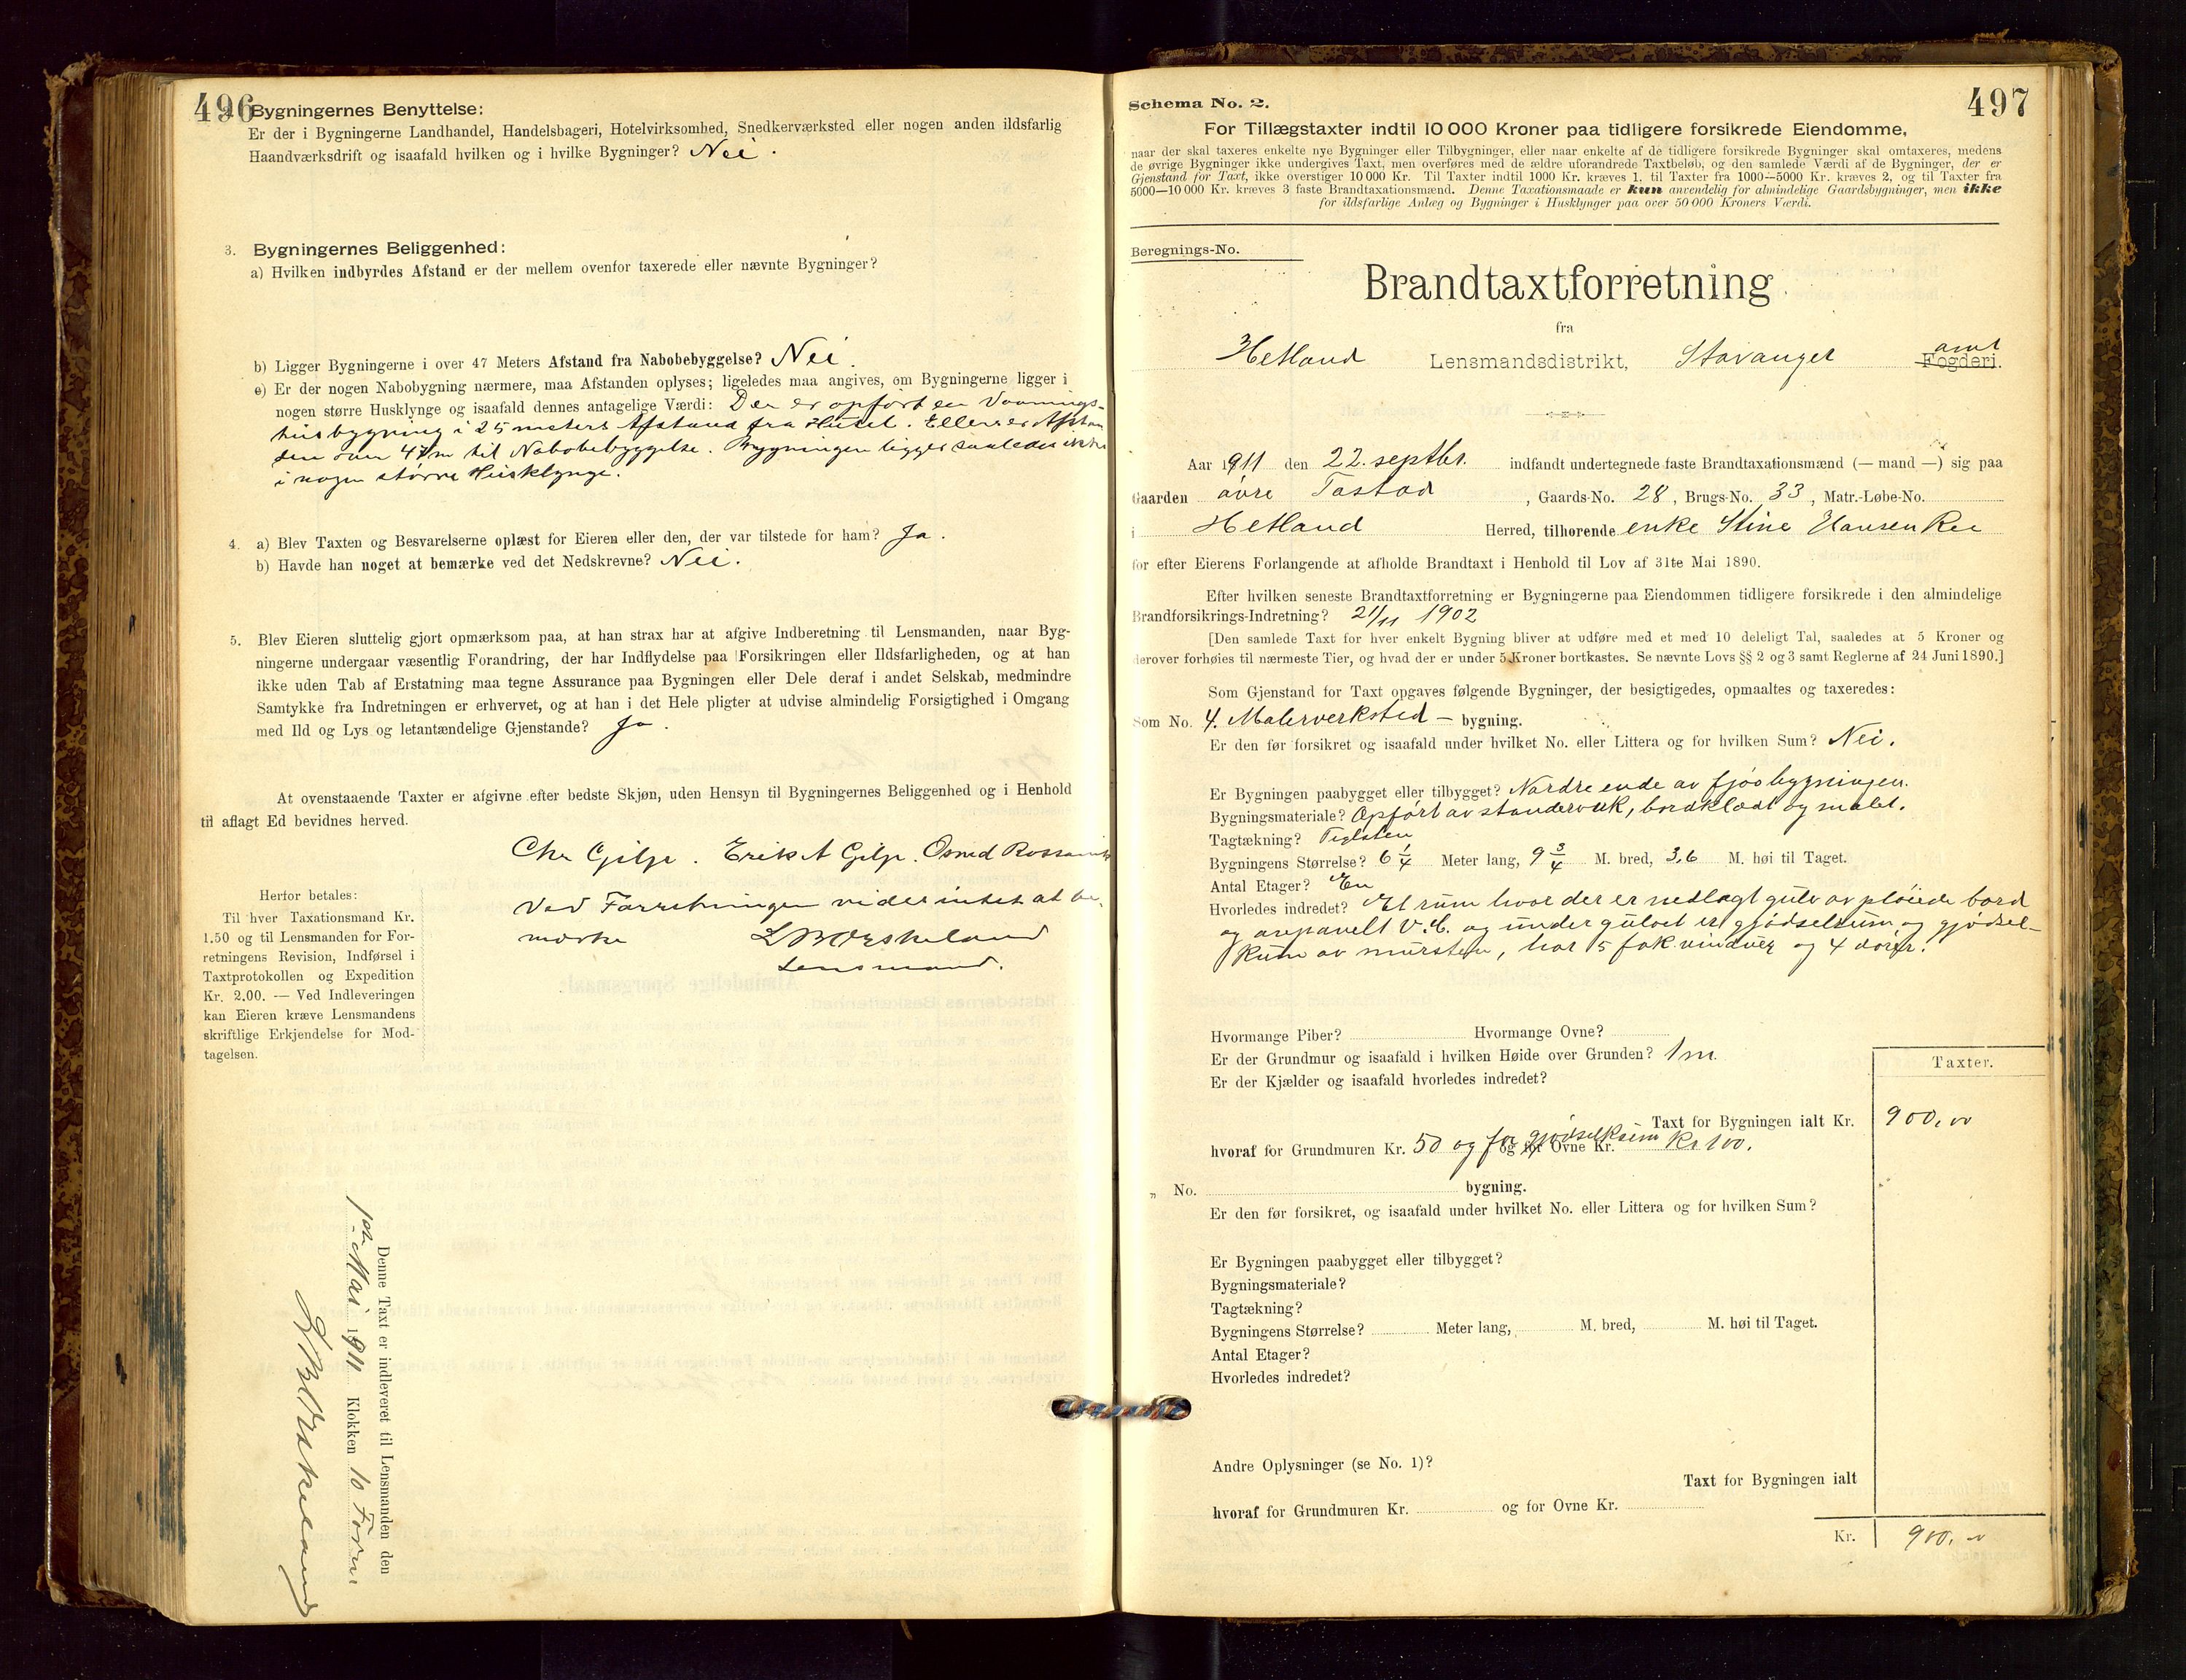 496 Bygningernes Benyttelse:
Er der i Bygningerne Landhandel, Handelsbageri, Hotelvirksomhed, Snedkerværksted eller nogen anden ildsfarlig
Haandværksdrift og isaafald hvilken og i hvilke Bygninger? Nei.
3. Bygningernes Beliggenhed:
a) Hvilken indbyrdes Afstand er der mellem ovenfor taxerede eller nævnte Bygninger?
b) Ligger Bygningerne i over 47 Meters Afstand fra Nabobebyggelse? Nei.
c) Er der nogen Nabobygning nærmere, maa Afstanden oplyses; ligeledes maa angives, om Bygningerne ligger i
nogen større Husklynge og isaafald dennes antagelige Værdi: Der er opført en Vaanings-
husbygning i 25 meters Afstand fra Huset. Ellers er Afstan
den over 47 m til Nabobebyggelse. Bygningen ligger saaledes ikke
i nogen større Husklynge.
4. a) Blev Taxten og Besvarelserne oplæst for Eieren eller den, der var tilstede for ham? Ja.
b) Havde han noget at bemærke ved det Nedskrevne? Nei.
5. Blev Eieren sluttelig gjort opmærksom paa, at han strax har at afgive Indberetning til Lensmanden, naar Byg-
ningerne undergaar væsentlig Forandring, der har Indflydelse paa Forsikringen eller Ildsfarligheden, og at han
ikke uden Tab af Erstatning maa tegne Assurance paa Bygningen eller Dele deraf i andet Selskab, medmindre
Samtykke fra Indretningen er erhvervet, og at han i det Hele pligter at udvise almindelig Forsigtighed i Omgang
med Ild og Lys og letantændelige Gjenstande? Ja.
At ovenstaaende Taxter er afgivne efter bedste Skjøn, uden Hensyn til Bygningernes Beliggenhed og i Henhold
til aflagt Ed bevidnes herved.
Chr Gilje. Erik A Gilje. Osmd Rossavik
Ved Forretningen vides intet at be-
mærke L Wørskeland
Lensmand.
Herfor betales:
Til hver Taxationsmand Kr.
1.50 og til Lensmanden for For-
retningens Revision, Indførsel i
Taxtprotokollen og Expedition
Kr. 2.00. — Ved Indleveringen
kan Eieren kræve Lensmandens
skriftlige Erkjendelse for Mod-
tagelsen.
Denne Taxt er indleveret til Lensmanden den
1ste Mai 1911 Klokken 10 Form
497
Schema No. 2.
For Tillægstaxter indtil 10 000 Kroner paa tidligere forsikrede Eiendomme,
naar der skal taxeres enkelte nye Bygninger eller Tilbygninger, eller naar enkelte af de tidligere forsikrede Bygninger skal omtaxeres, medens
de øvrige Bygninger ikke undergives Taxt, men overføres med de ældre uforandrede Taxtbeløb, og den samlede Værdi af de Bygninger, der er
Gjenstand for Taxt, ikke overstiger 10 000 Kr. Til Taxter indtil 1000 Kr. kræves 1, til Taxter fra 1000—5000 Kr. kræves 2, og til Taxter fra
5000—10 000 Kr. kræves 3 faste Brandtaxationsmænd. Denne Taxationsmaade er kun anvendelig for almindelige Gaardsbygninger, men ikke
for ildsfarlige Anlæg og Bygninger i Husklynger paa over 50 000 Kroners Værdi.
Beregnings-No.
Brandtaxtforretning
fra
Hetland Lensmandsdistrikt, Stavanger amt Fogderi.
Aar 1911 den 22. septbr. indfandt undertegnede faste Brandtaxationsmænd (— mand —) sig paa
Gaarden øvre Tastad, Gaards-No. 28, Brugs-No. 33, Matr.-Løbe-No.
i Hetland Herred, tilhørende enke Stine Hansen Ree
for efter Eierens Forlangende at afholde Brandtaxt i Henhold til Lov af 31te Mai 1890.
Efter hvilken seneste Brandtaxtforretning er Bygningerne paa Eiendommen tidligere forsikrede i den almindelige
Brandforsikrings-Indretning? 21/11 1902
[Den samlede Taxt for hver enkelt Bygning bliver at udføre med et med 10 deleligt Tal, saaledes at 5 Kroner og
derover forhøies til nærmeste Tier, og hvad der er under 5 Kroner bortkastes. Se nævnte Lovs §§ 2 og 3 samt Reglerne af 24 Juni 1890.]
Som Gjenstand for Taxt opgaves følgende Bygninger, der besigtigedes, opmaaltes og taxeredes:
Som No. 4. Malerverksted — bygning.
Er den før forsikret og isaafald under hvilket No. eller Littera og for hvilken Sum? Nei.
Er Bygningen paabygget eller tilbygget? Nordre ende av fjøsbygningen.
Bygningsmateriale? Opført av standerverk, bordklædt og malet.
Tagtækning? Teglsten
Bygningens Størrelse? 6 1/4 Meter lang, 9 3/4 M. bred, 3,6 M. høi til Taget.
Antal Etager? En
Hvorledes indredet? Et rum hvor der er nedlagt gulv av pløiede bord
og avpanelt V.C. og under gulvet er gjødselrum og gjødsel-
kum av mursten, har 5 fak vinduer og 4 dører.
Hvormange Piber? Hvormange Ovne?
Er der Grundmur og isaafald i hvilken Høide over Grunden? 1 m.
Er der Kjælder og isaafald hvorledes indredet?
Taxter.
Taxt for Bygningen ialt Kr. 900,00
hvoraf for Grundmuren Kr. 50 og for gjødselkum og for Ovne Kr. Kr 100.
„ No. bygning.
Er den før forsikret, og isaafald under hvilket No. eller Littera og for hvilken Sum?
Er Bygningen paabygget eller tilbygget?
Bygningsmateriale?
Tagtækning?
Bygningens Størrelse? Meter lang, M. bred, M. høi til Taget.
Antal Etager?
Hvorledes indredet?
Andre Oplysninger (se No. 1)?
Taxt for Bygningen ialt
hvoraf for Grundmuren Kr. og for Ovne Kr.
Kr. 900,00